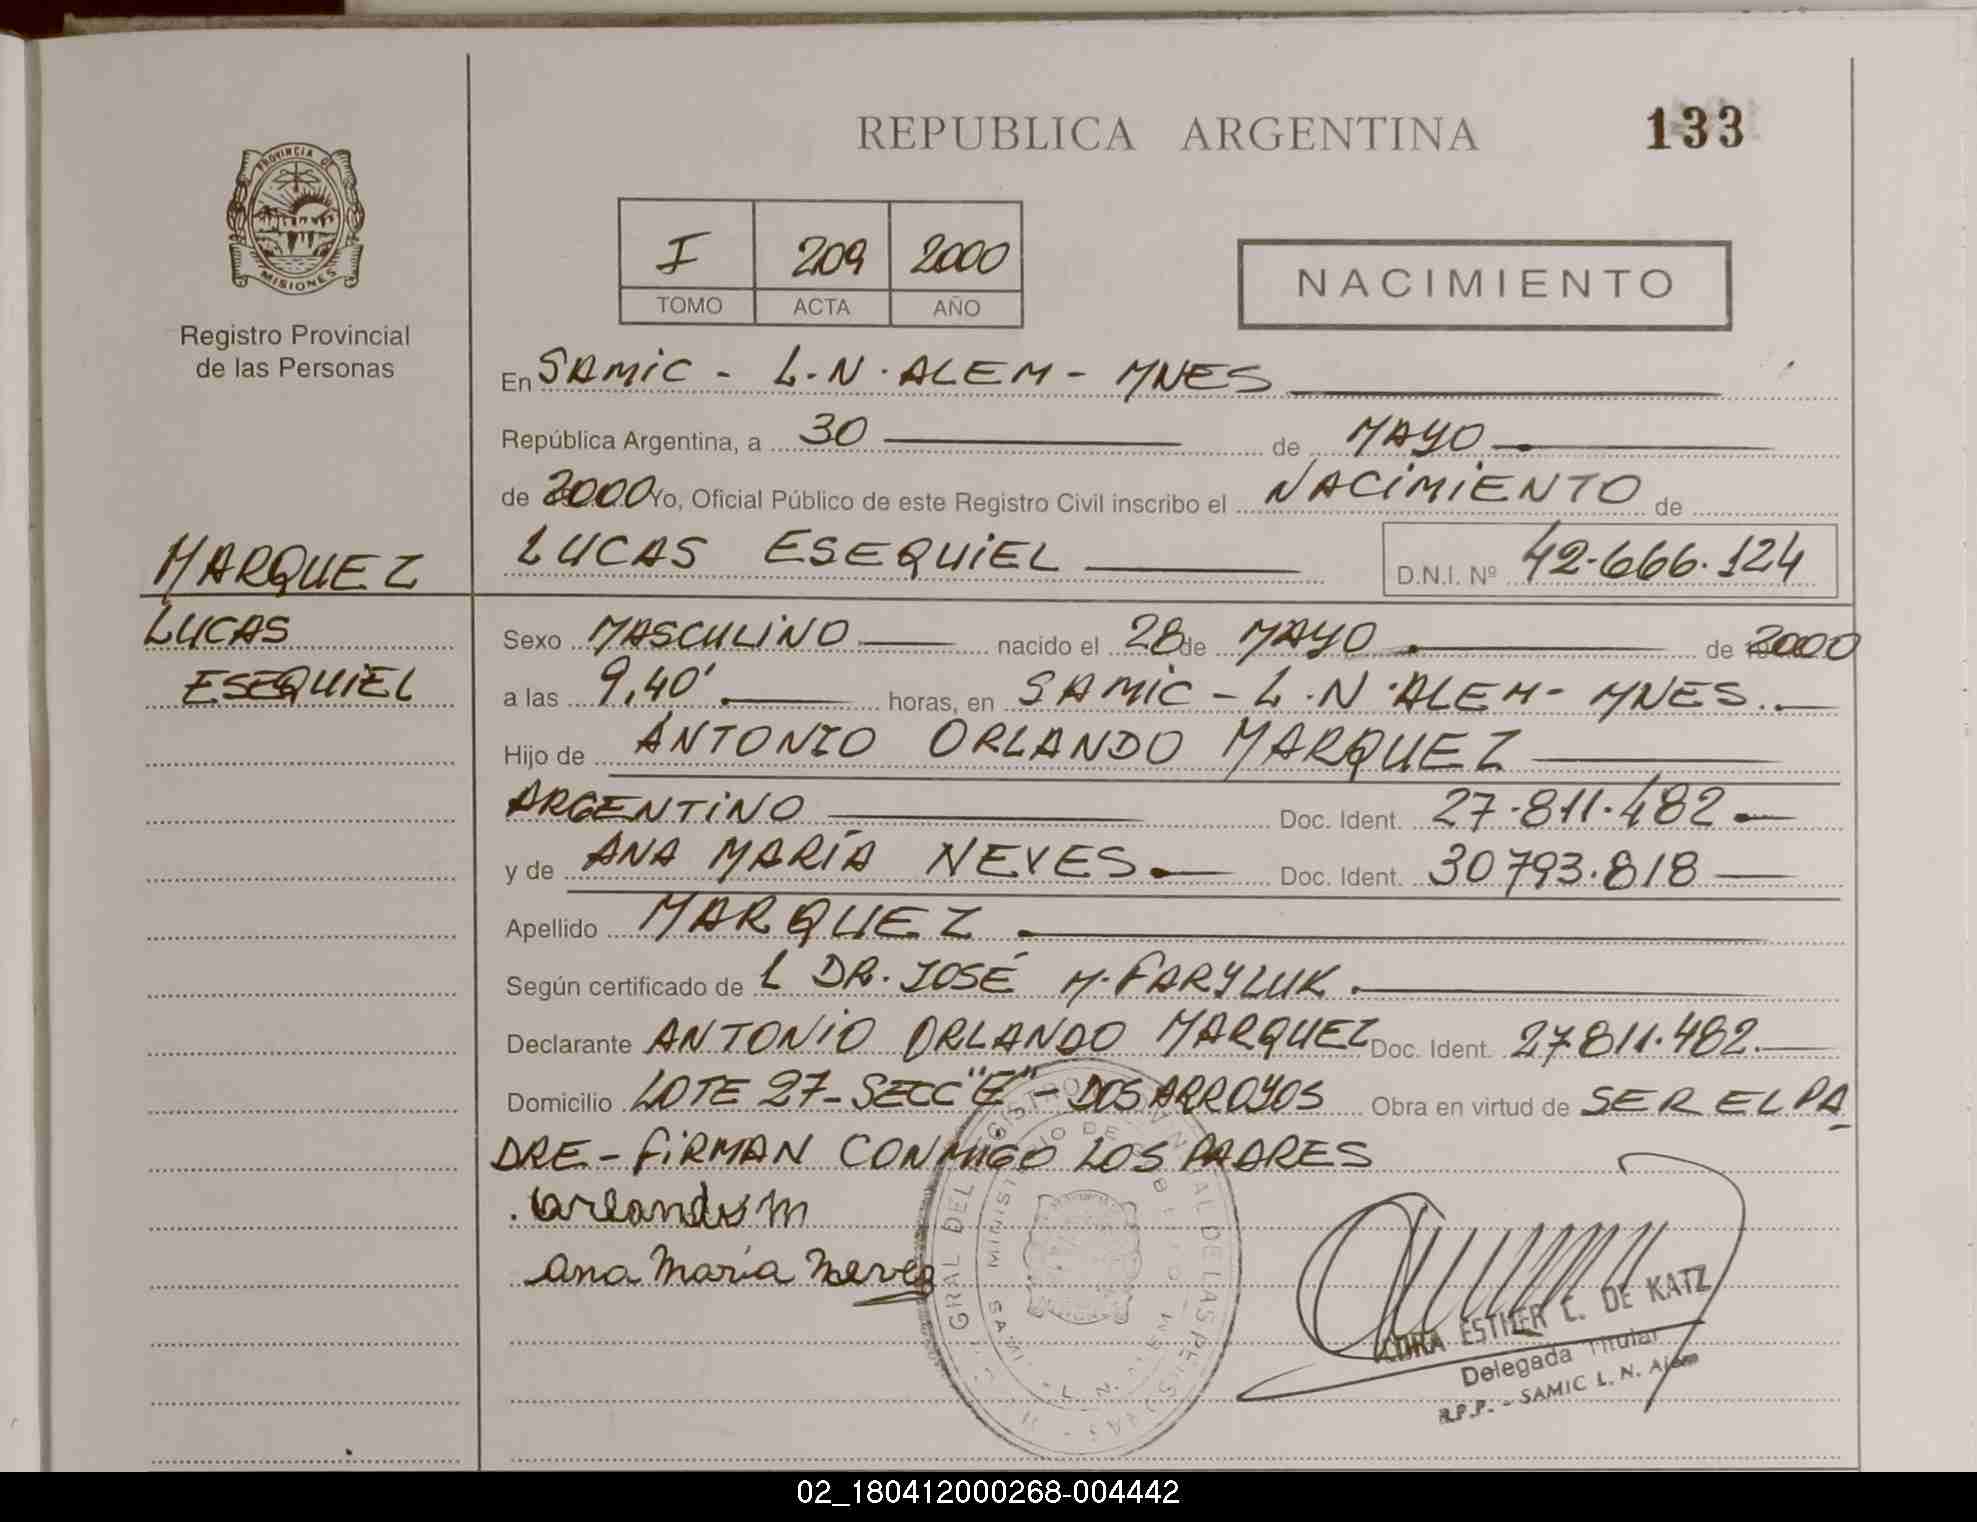 REPUBLICA ARGENTINA
133
PROVINCIA DE
MISIONES
Registro Provincial
de las Personas
I 209 2000
TOMO ACTA AÑO
NACIMIENTO
En SAMIC - L.N. ALEM - MNES
República Argentina, a 30 de MAYO
de 2000 Yo, Oficial Público de este Registro Civil inscribo el NACIMIENTO de
MARQUEZ
LUCAS
ESEQUIEL
LUCAS ESEQUIEL D.N.I. Nº 42.666.124
Sexo MASCULINO nacido el 28 de MAYO de 2000
a las 9,40' horas, en SAMIC - L.N. ALEM - MNES.
Hijo de ANTONIO ORLANDO MARQUEZ
ARGENTINO Doc. Ident. 27.811.482
y de ANA MARÍA NEVES Doc. Ident. 30793.818
Apellido MARQUEZ
Según certificado de L DR. JOSÉ M. FARYLUK.
Declarante ANTONIO ORLANDO MARQUEZ Doc. Ident. 27.811.482.
Domicilio LOTE 27 - SECC "E" - DOS ARROYOS Obra en virtud de SER EL PA
DRE - FIRMAN CONMIGO LOS PADRES
Orlando M
Ana María Neves
GRAL DEL REGISTRO PROVINCIAL DE LAS PERSONAS
MINISTERIO DE GOBIERNO
SAMIC L. N. ALEM
ESTHER C. DE KATZ
Delegada Titular
R.P.P. - SAMIC L. N. Alem
02_180412000268-004442